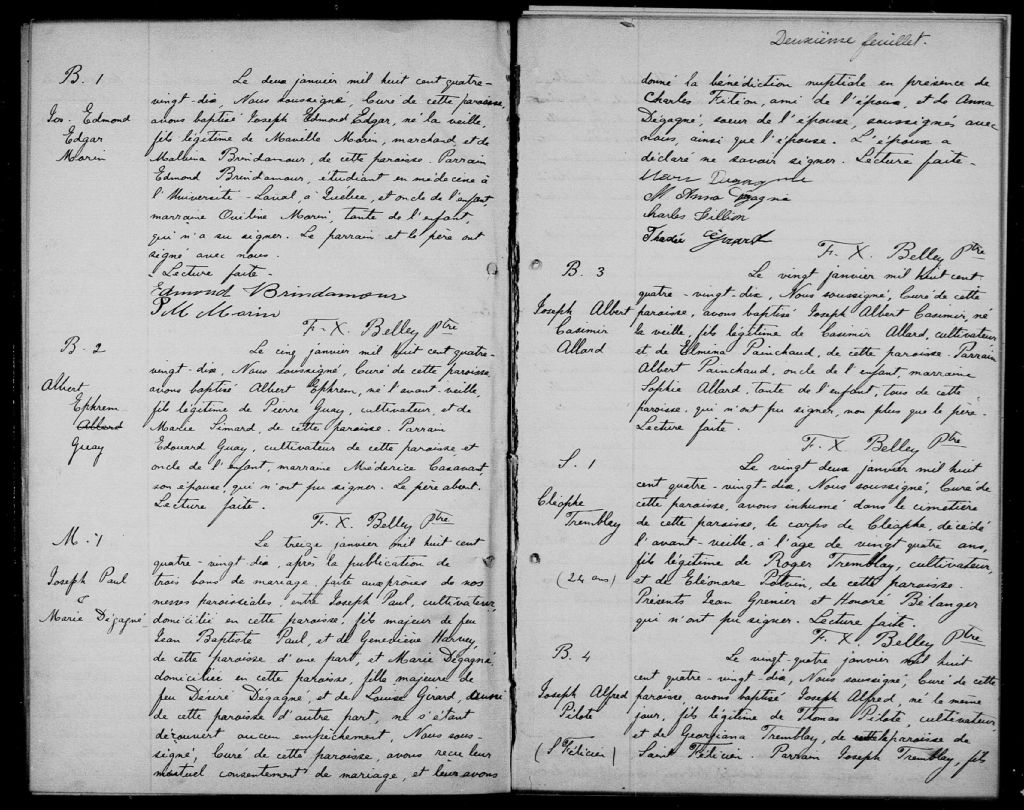 B. 1
Jos. Edmond
Edgar
Morin
Le deux janvier mil huit cent quatre-
vingt-dix, Nous soussigné, Curé de cette paroisse,
avons baptisé Joseph Edmond Edgar, né la veille,
fils légitime de Manille Morin, marchand, et de
Malvina Brindamour, de cette paroisse. Parrain
Edmond Brindamour, étudiant en médecine à
l'Université-Laval, à Québec, et oncle de l'enfant,
marraine Oneline Morin, tante de l'enfant,
qui n'a su signer. Le parrain et le père ont
signé avec nous.
Lecture faite.
Edmond Brindamour
P M Morin
F. X. Belley Ptre
B. 2
Albert
Ephrem
Allard
Guay
Le cinq janvier mil huit cent quatre-
vingt-dix, Nous soussigné, Curé de cette paroisse
avons baptisé Albert Ephrem, né l'avant-veille,
fils légitime de Pierre Guay, cultivateur, et de
Marie Simard, de cette paroisse. Parrain
Edouard Guay, cultivateur de cette paroisse et
oncle de l'enfant, marraine Méderice Casavant
son épouse, qui n'ont pu signer. Le père absent.
Lecture faite.
F. X. Belley Ptre
M. 1
Joseph Paul
&
Marie Dégagné
Le treize janvier mil huit cent
quatre-vingt-dix, après la publication de
trois bans de mariage faite aux prônes de nos
messes paroissiales, entre Joseph Paul, cultivateur
domicilié en cette paroisse, fils majeur de feu
Jean Baptiste Paul, et de Geneviève Harvey,
de cette paroisse d'une part, et Marie Dégagné
domiciliée en cette paroisse, fille majeure de
feu Désiré Dégagné, et de Louise Girard, aussi
de cette paroisse d'autre part, ne s'étant
découvert aucun empêchement, Nous sous-
signé, Curé de cette paroisse, avons reçu leur
mutuel consentement de mariage, et leur avons
Deuxième feuillet.
donné la bénédiction nuptiale en présence de
Charles Filion, ami de l'époux, et de Anna
Dégagné, sœur de l'épouse, soussignés avec
nous, ainsi que l'épouse. L'époux a
déclaré ne savoir signer. Lecture faite.
M Anna Degagné
Charles Fillion
Thadée Girard
F. X. Belley Ptre
B. 3
Joseph Albert
Casimir
Allard
Le vingt janvier mil huit cent
quatre-vingt-dix, Nous soussigné, Curé de cette
paroisse, avons baptisé Joseph Albert Casimir, né
la veille, fils légitime de Casimir Allard, cultivateur
et de Elmina Painchaud, de cette paroisse. Parrain
Albert Painchaud, oncle de l'enfant, marraine
Sophie Allard, tante de l'enfant, tous de cette
paroisse, qui n'ont pu signer, non plus que le père.
Lecture faite.
F. X. Belley Ptre
S. 1
Cléophe
Tremblay
(24 ans)
Le vingt deux janvier mil huit
cent quatre-vingt-dix, Nous soussigné, Curé de
cette paroisse, avons inhumé dans le cimetière
de cette paroisse, le corps de Cléophe, décédé
l'avant-veille, à l'age de vingt quatre ans,
fils légitime de Roger Tremblay, cultivateur,
et de Eléonore Potvin, de cette paroisse.
Présents Jean Grenier et Honoré Bélanger
qui n'ont pu signer. Lecture faite.
F. X. Belley Ptre
B. 4
Joseph Alfred
Pilote
(S. Félicien)
Le vingt-quatre janvier mil huit
cent quatre-vingt-dix, Nous soussigné, Curé de cette
paroisse, avons baptisé Joseph Alfred, né le même
jour, fils légitime de Thomas Pilote, cultivateur
et de Georgiana Tremblay, de cette paroisse de
Saint Félicien. Parrain Joseph Tremblay, fils